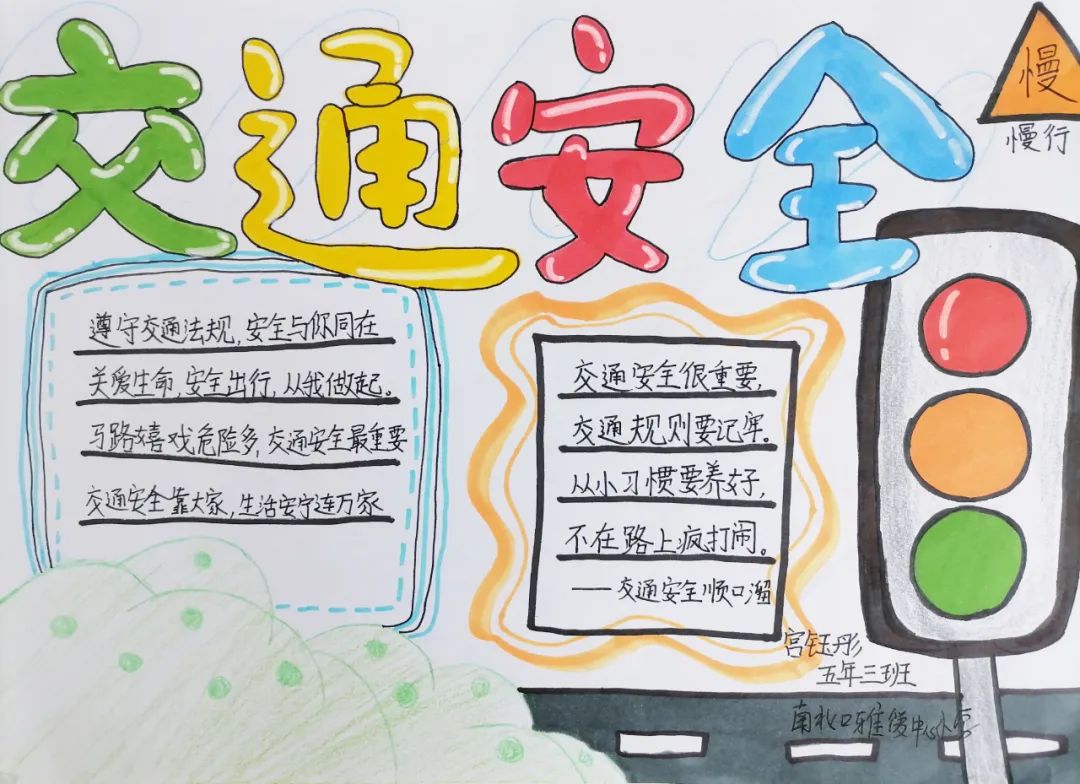 交通安全
慢
慢行
遵守交通法规,安全与你同在
关爱生命,安全出行,从我做起。
马路嬉戏危险多,交通安全最重要
交通安全靠大家,生活安宁连万家
交通安全很重要,
交通规则要记牢。
从小习惯要养好,
不在路上疯打闹。
——交通安全顺口溜
宫钰彤
五年三班